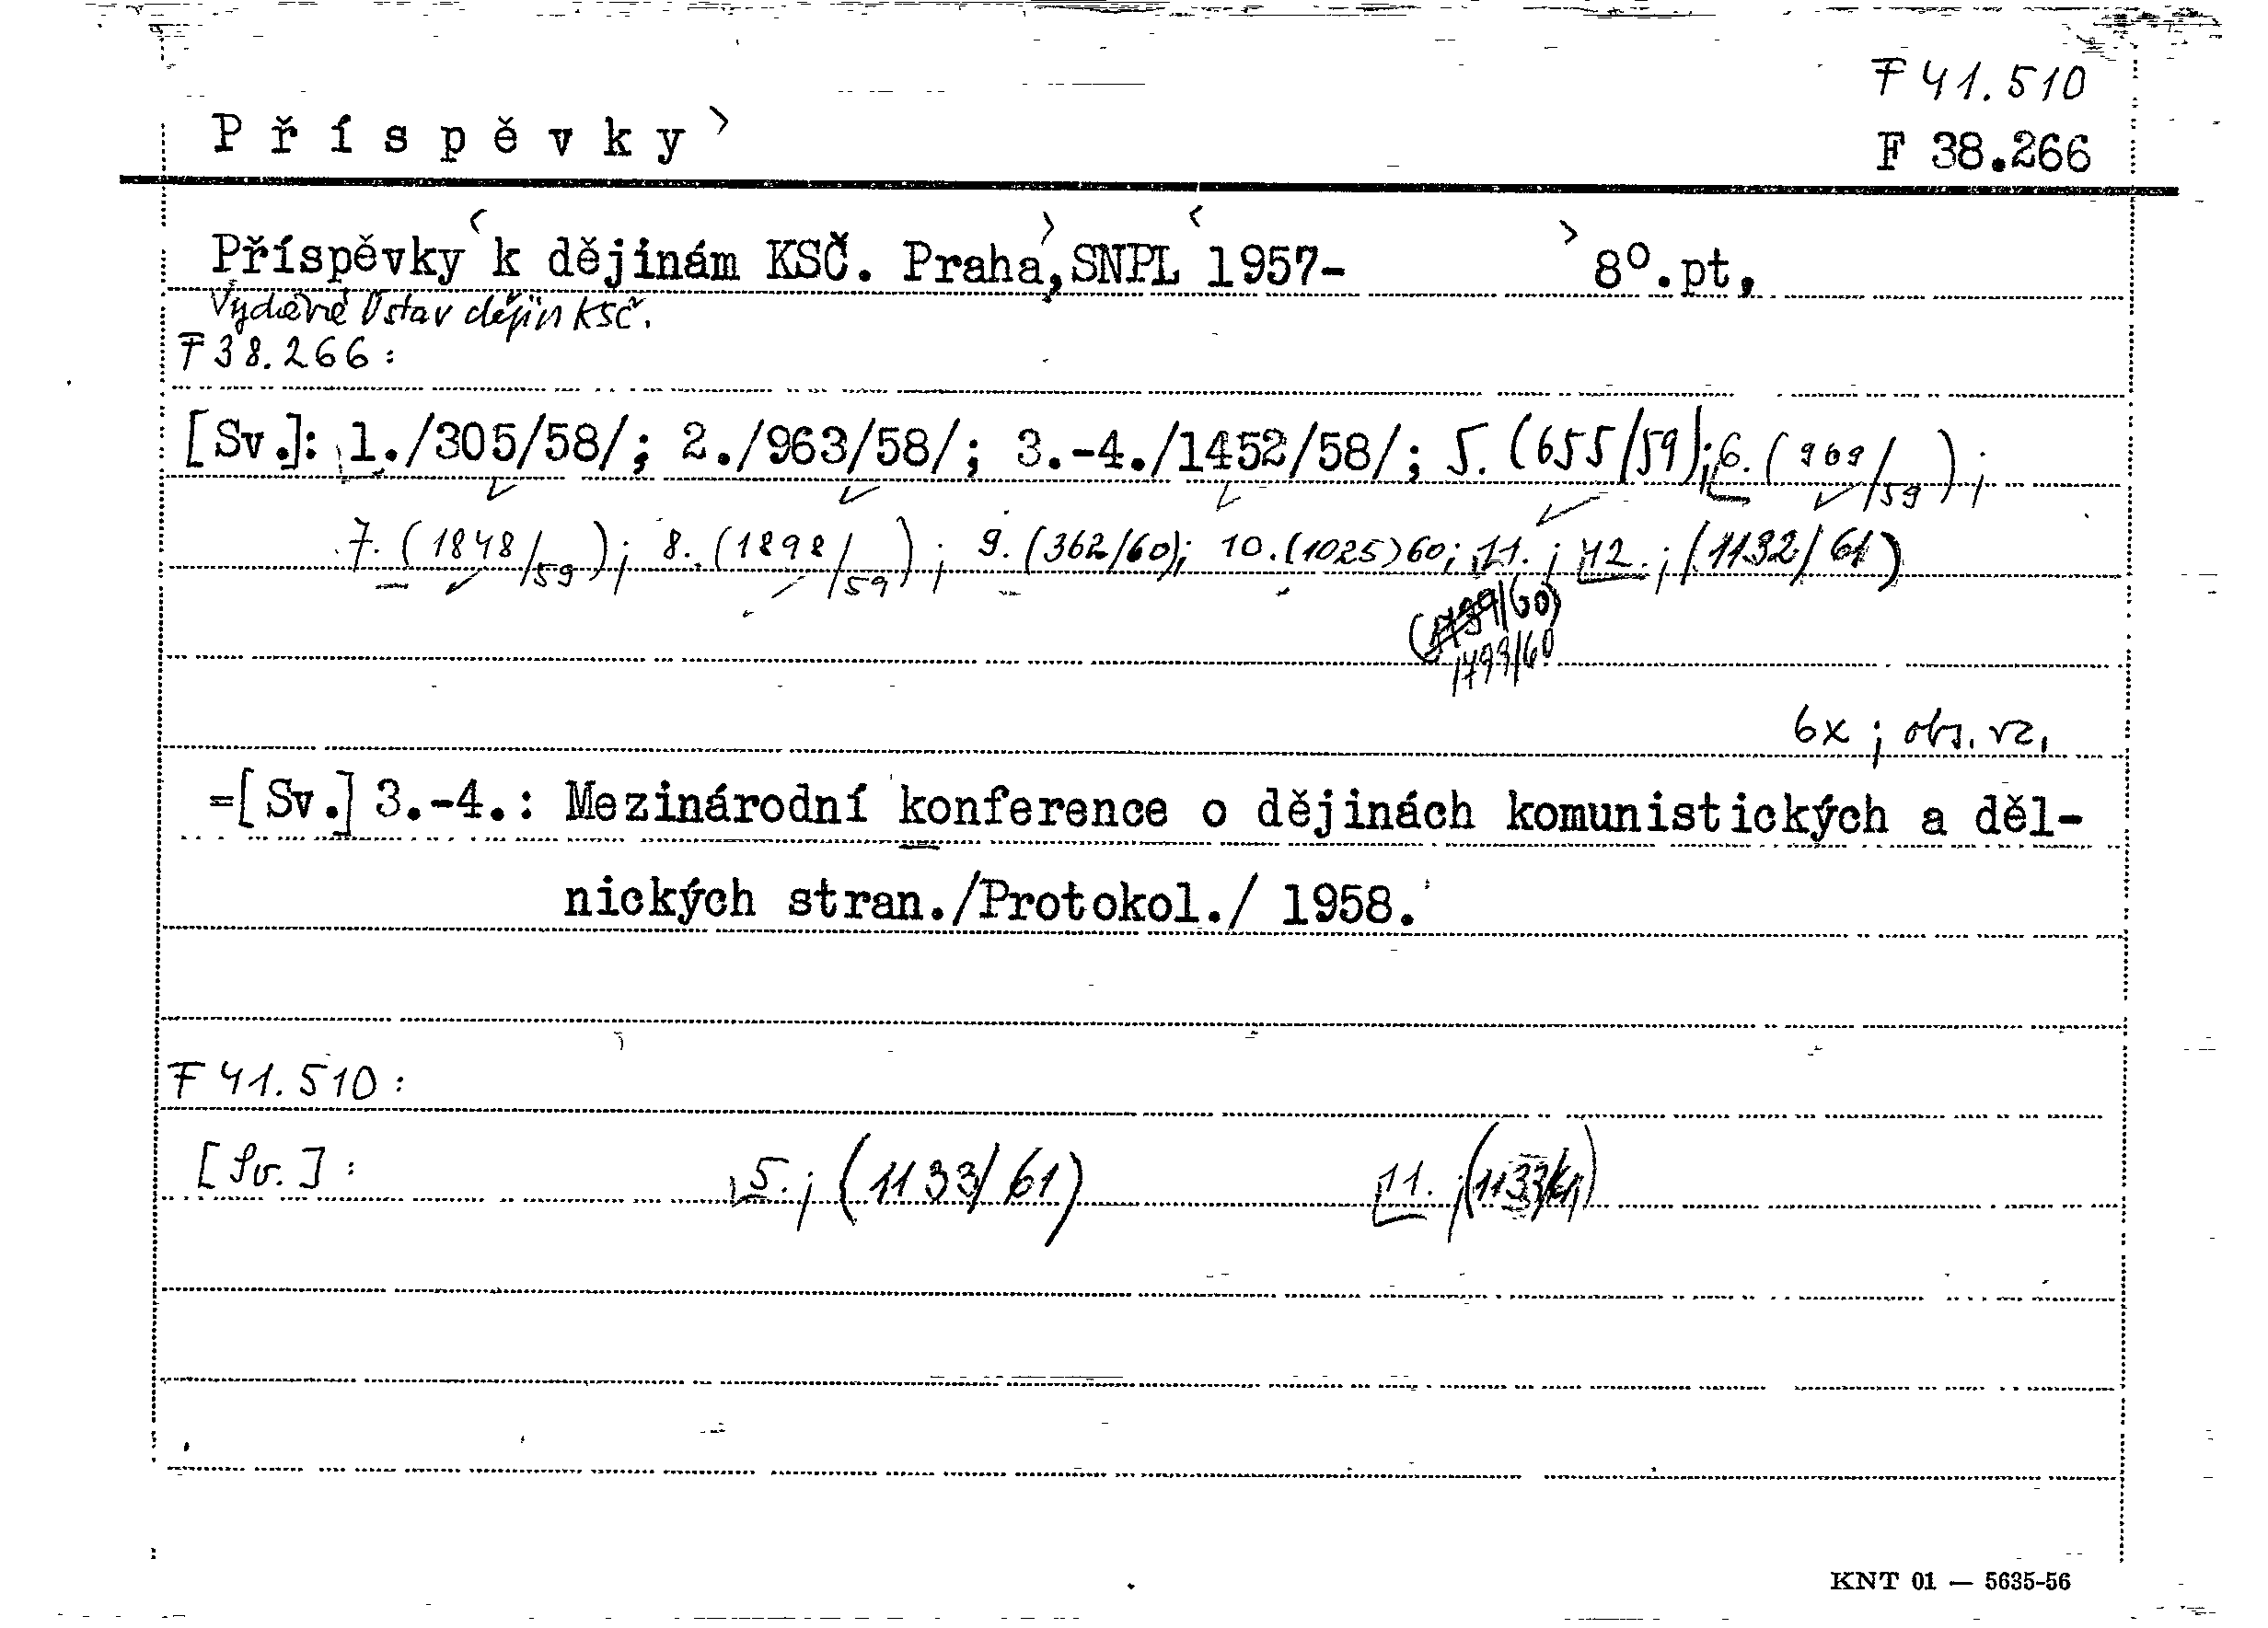 F 41.510
Příspěvky
F 38.266
Příspěvky k dějinám KSČ. Praha, SNPL 1957- 8°. pt,
Vydává Ústav dějin KSČ.
F 38.266:
[Sv.]: 1./305/58/; 2./963/58/; 3.-4./1452/58/; 5. (655/59); 6. (969/59);
7. (1848/59); 8. (1898/59); 9. (362/60); 10. (1025)60; 11.; 12.; (1132/61)
1499/60
6x; obj. vz,
=[Sv.] 3.-4.: Mezinárodní konference o dějinách komunistických a děl-
nických stran./Protokol./ 1958.
F 41.510:
[Sv.]: 5.; (1133/61) 11.; (1133/61)
KNT 01 — 5635-56